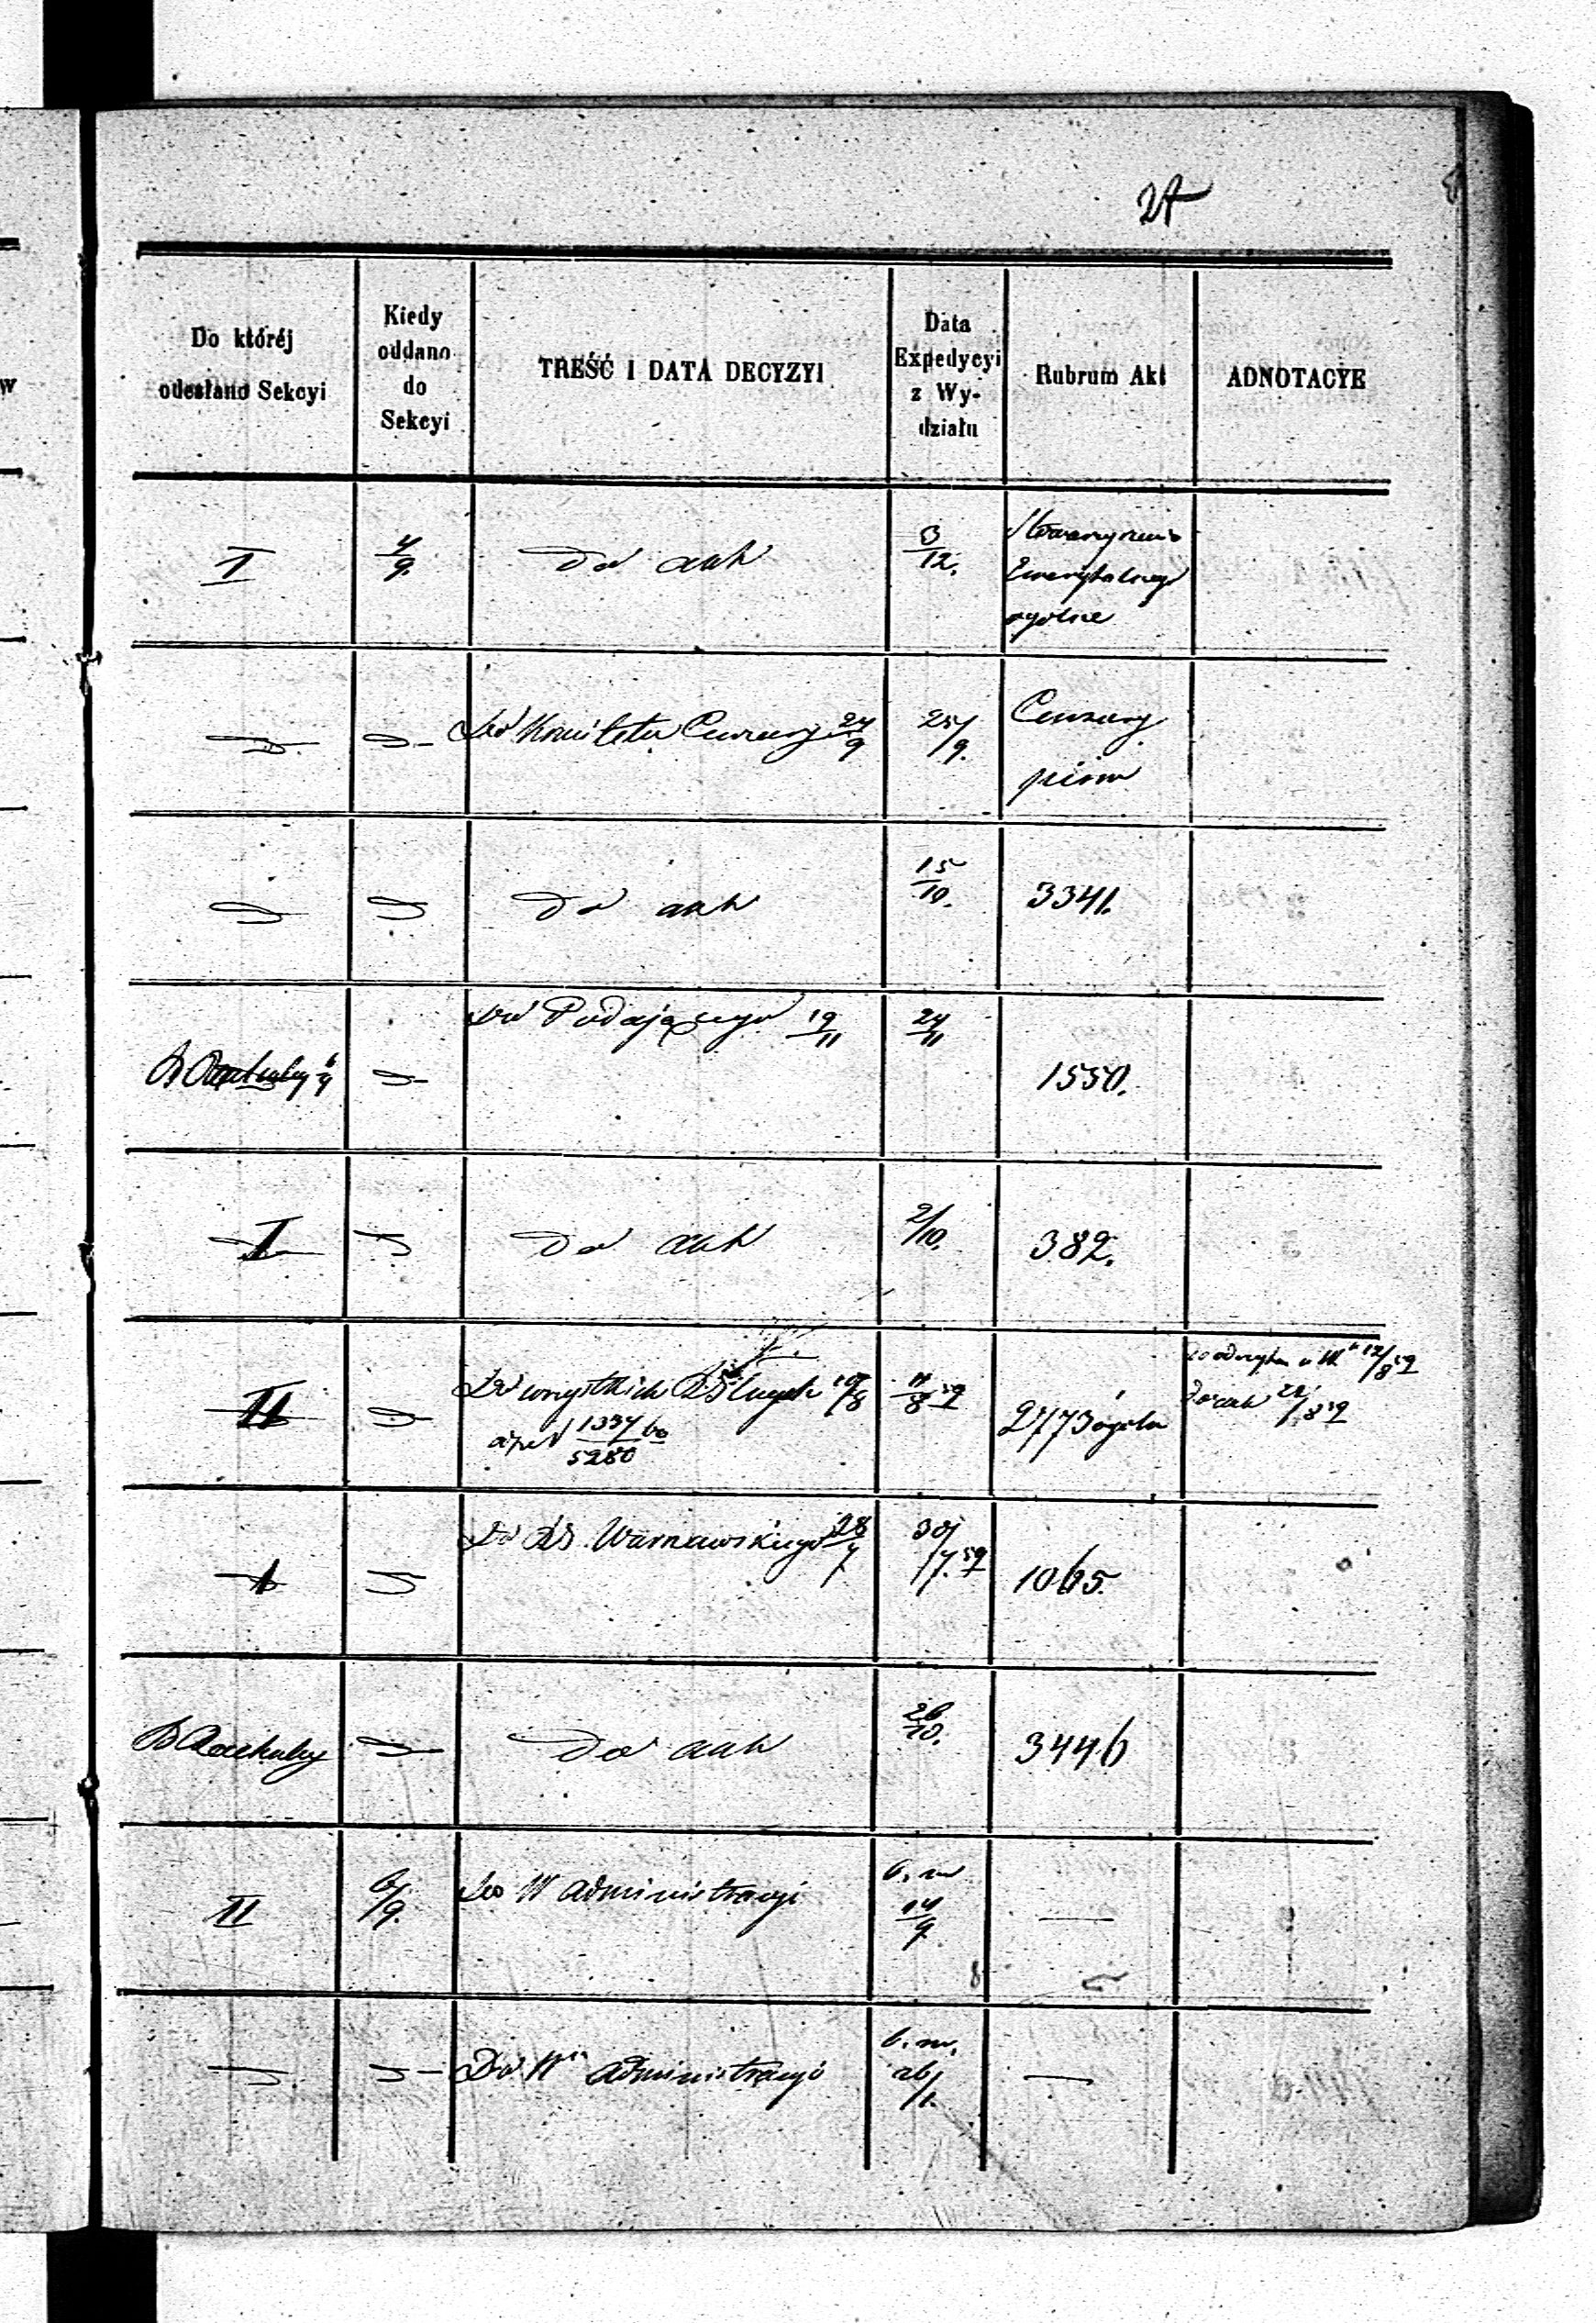 27
Do któréj
odesłano Sekcyi
Kiedy
oddano
do
Sekcyi
TREŚĆ I DATA DECYZYI
Data
Expedycyi
z Wy-
działu
Rubrum Akt
ADNOTACYE
I
4/9.
do akt
3/12.
Stowarzyszenie
Emerytalnego
ogólne
Do Komitetu Cenzury 24/9
25/9.
Cenzury
pism
do akt
15/10.
3341.
Do Podającego 19/11
24/11
1550.
I
do akt
2/10.
382.
II
Do wszystkich
1334
5280
2773 ogóln
do akt
I
Do Warszawskiego 28/7
30/7. 59
1065.
B Rachuby
do akt
26/10.
3446
II
6/9.
Do W Administracyi
b. m
14/9
—
Do Wu Administracyi
b. m.
—